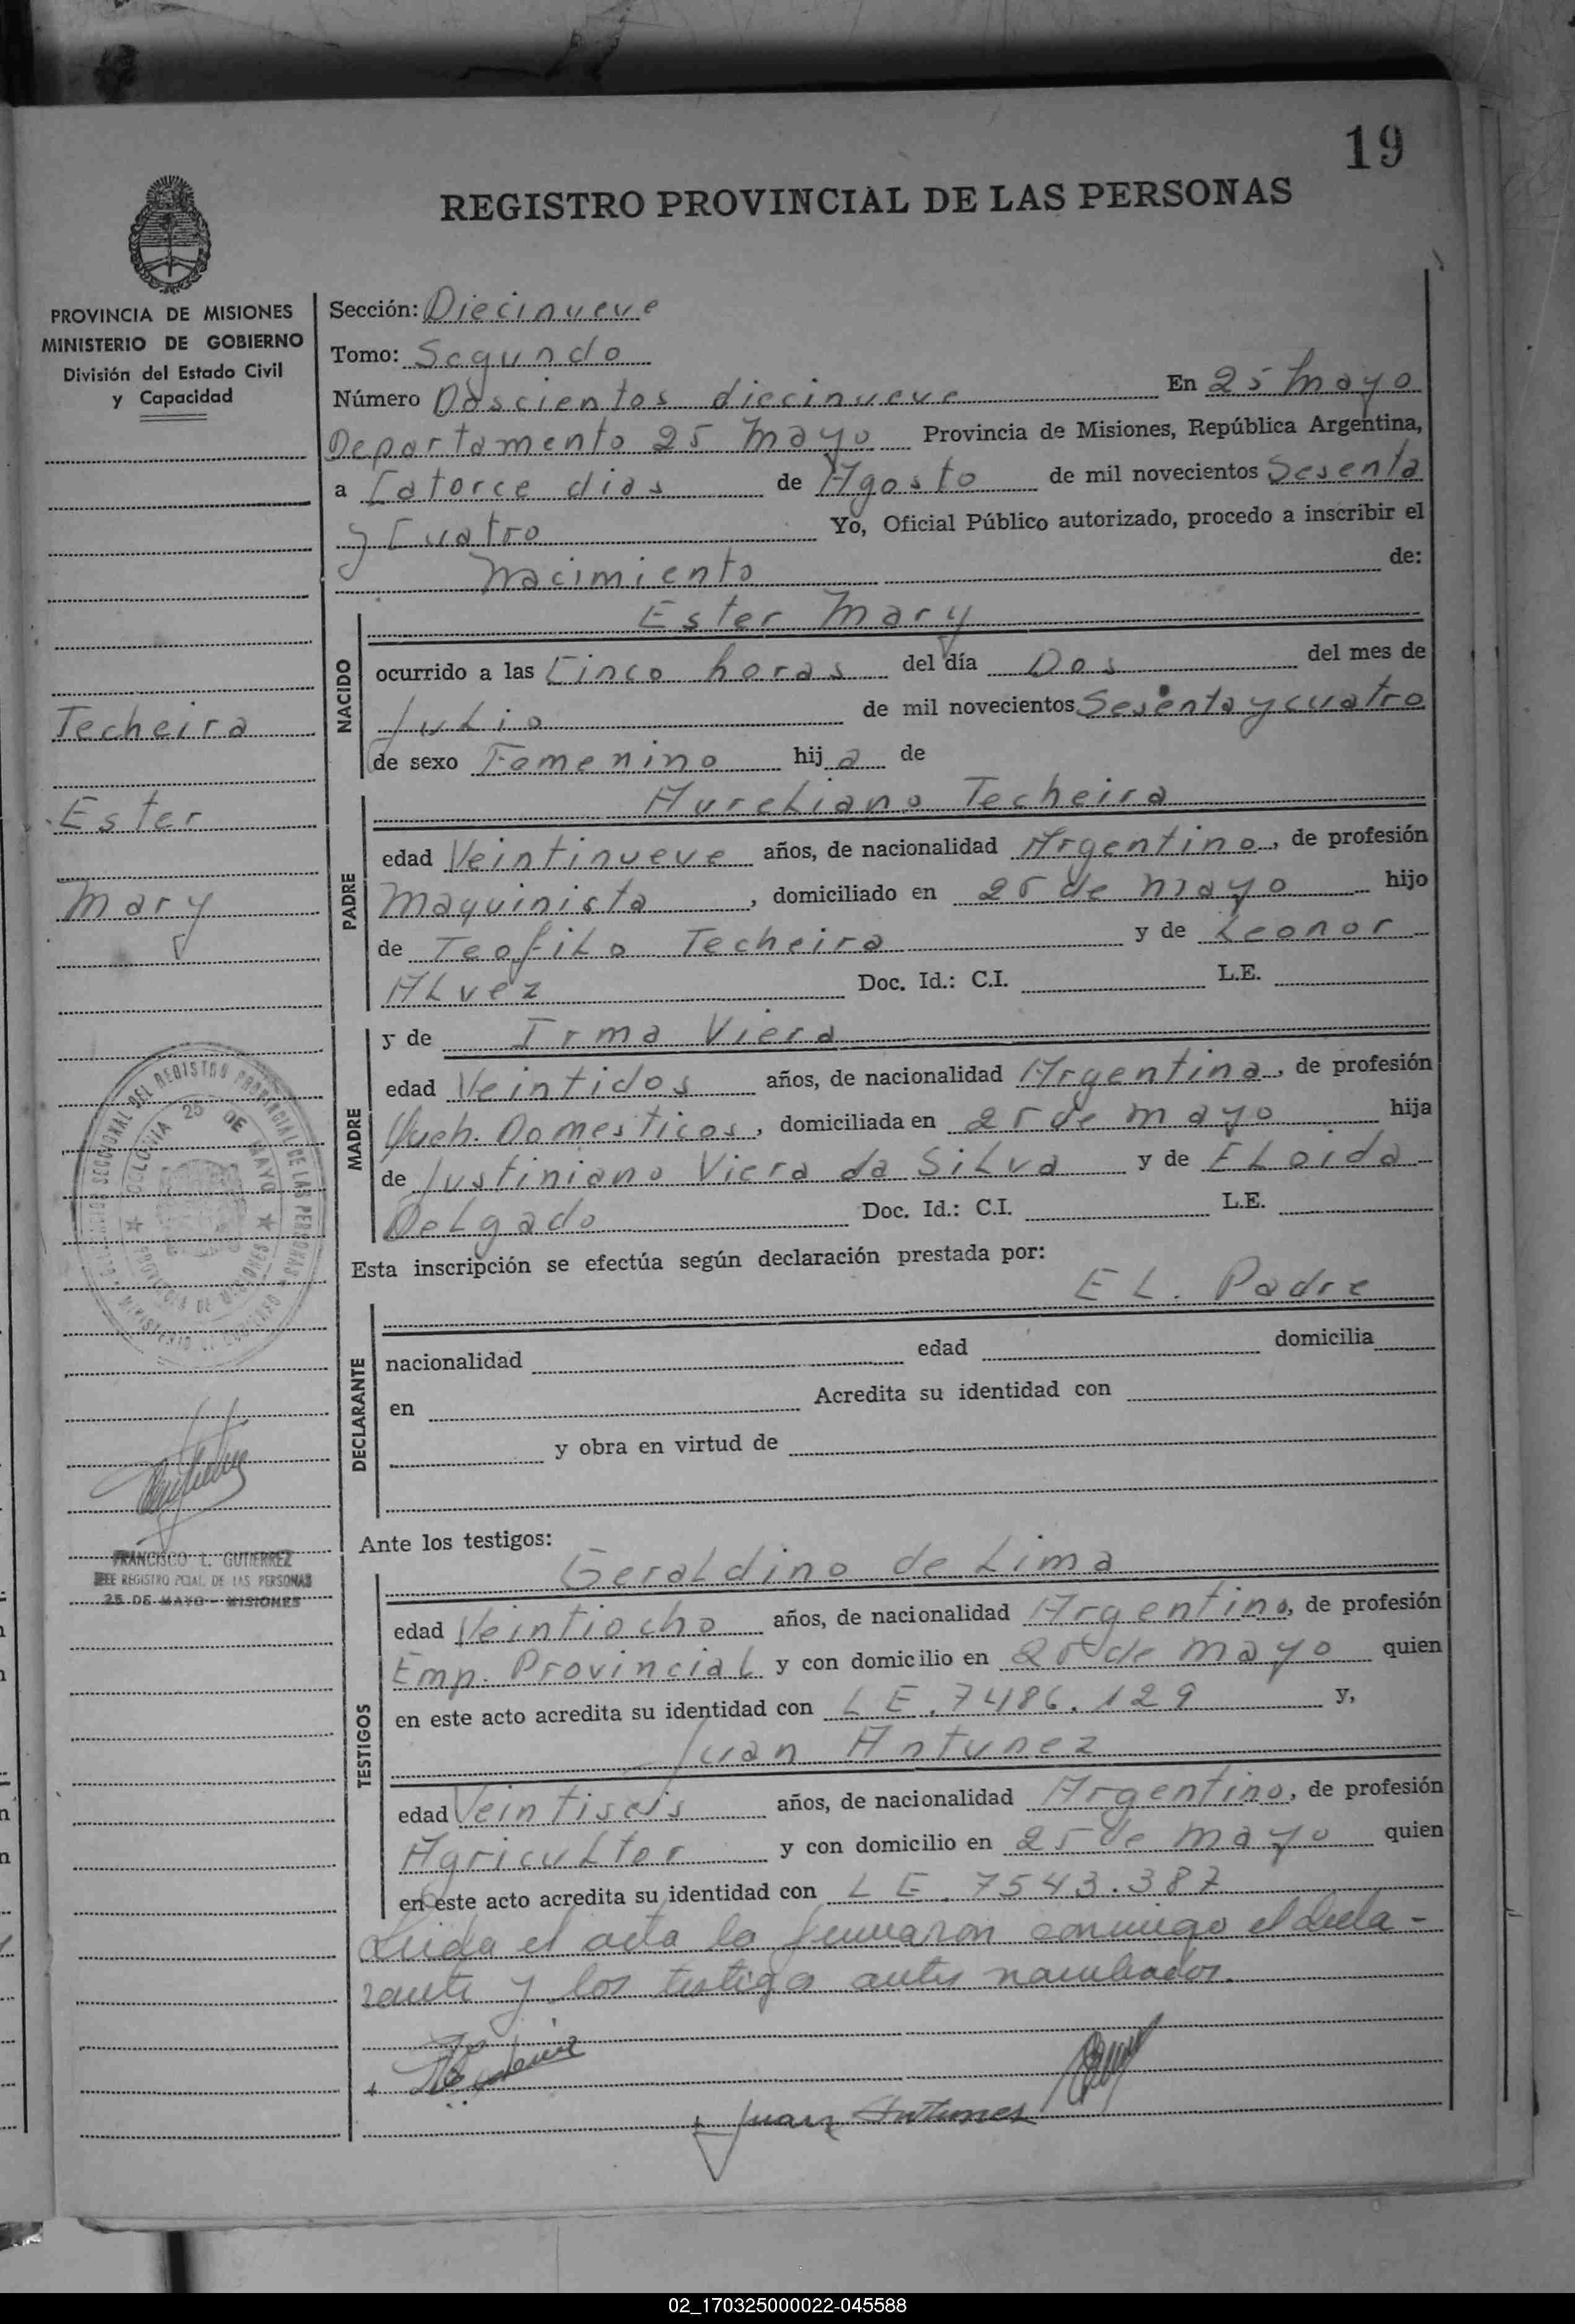 19
REGISTRO PROVINCIAL DE LAS PERSONAS
PROVINCIA DE MISIONES
MINISTERIO DE GOBIERNO
División del Estado Civil
y Capacidad
Techeira
Ester
Mary
COLONIA 25 DE MAYO
FRANCISCO L. GUTIERREZ
JEFE REGISTRO PCIAL. DE LAS PERSONAS
25 DE MAYO - MISIONES
Sección: Diecinueve
Tomo: Segundo
Número Doscientos diecinueve En 25 Mayo
Departamento 25 Mayo Provincia de Misiones, República Argentina,
a Catorce dias de Agosto de mil novecientos Sesenta
y Cuatro Yo, Oficial Público autorizado, procedo a inscribir el
Nacimiento de:
NACIDO
Ester Mary
ocurrido a las Cinco horas del día Dos del mes de
Julio de mil novecientos Sesenta y cuatro
de sexo Femenino hija de
PADRE
Aureliano Techeira
edad Veintinueve años, de nacionalidad Argentino, de profesión
Maquinista, domiciliado en 25 de Mayo hijo
de Teofilo Techeira y de Leonor
Alvez Doc. Id.: C.I. L.E.
MADRE
y de Irma Viera
edad Veintidos años, de nacionalidad Argentina, de profesión
Queh. Domesticos, domiciliada en 25 de mayo hija
de Justiniano Viera da Silva y de Eloida
Delgado Doc. Id.: C.I. L.E.
Esta inscripción se efectúa según declaración prestada por:
DECLARANTE
El. Padre
nacionalidad edad domicilia
en Acredita su identidad con
y obra en virtud de
Ante los testigos:
TESTIGOS
Geraldino de Lima
edad Veintiocho años, de nacionalidad Argentino, de profesión
Emp. Provincial y con domicilio en 25 de mayo quien
en este acto acredita su identidad con L E. 7486.129 y,
Juan Antunez
edad Veintiseis años, de nacionalidad Argentino, de profesión
Agricultor y con domicilio en 25 de mayo quien
en este acto acredita su identidad con L E. 7543.387
Leida el acta la firmaron conmigo el decla-
rante y los testigos antes nombrados.
Juan Antunes
02_170325000022-045588